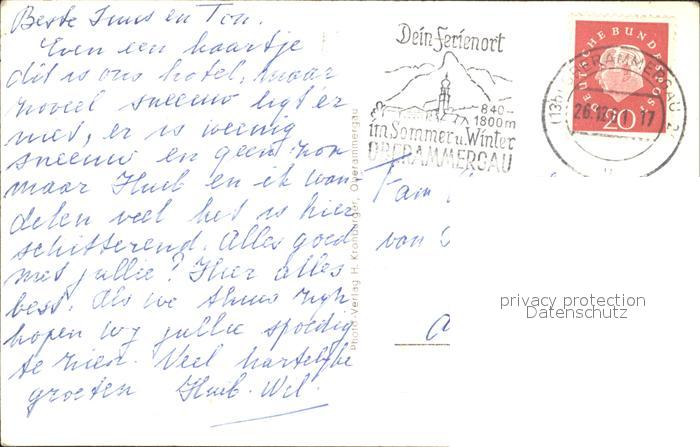 Beste Truus en Ton.
Even een kaartje
dit is ons hotel, maar
zoveel sneeuw ligt er
niet, er is weinig
sneeuw en geen zon
maar Huib en ik wan-
delen veel het is hier
schitterend. Alles goed
met jullie? Hier alles
best. Als we thuis zijn
hopen wij jullie spoedig
te zien. Veel hartelijke
groeten Huib. Wil.
Photo-Verlag H. Kronburger, Oberammergau
Dein Ferienort
840-
1800m
im Sommer u. Winter
OBERAMMERGAU
DEUTSCHE BUNDESPOST
20
(13b) OBERAMMERGAU 2
Fam
van
privacy protection
Datenschutz